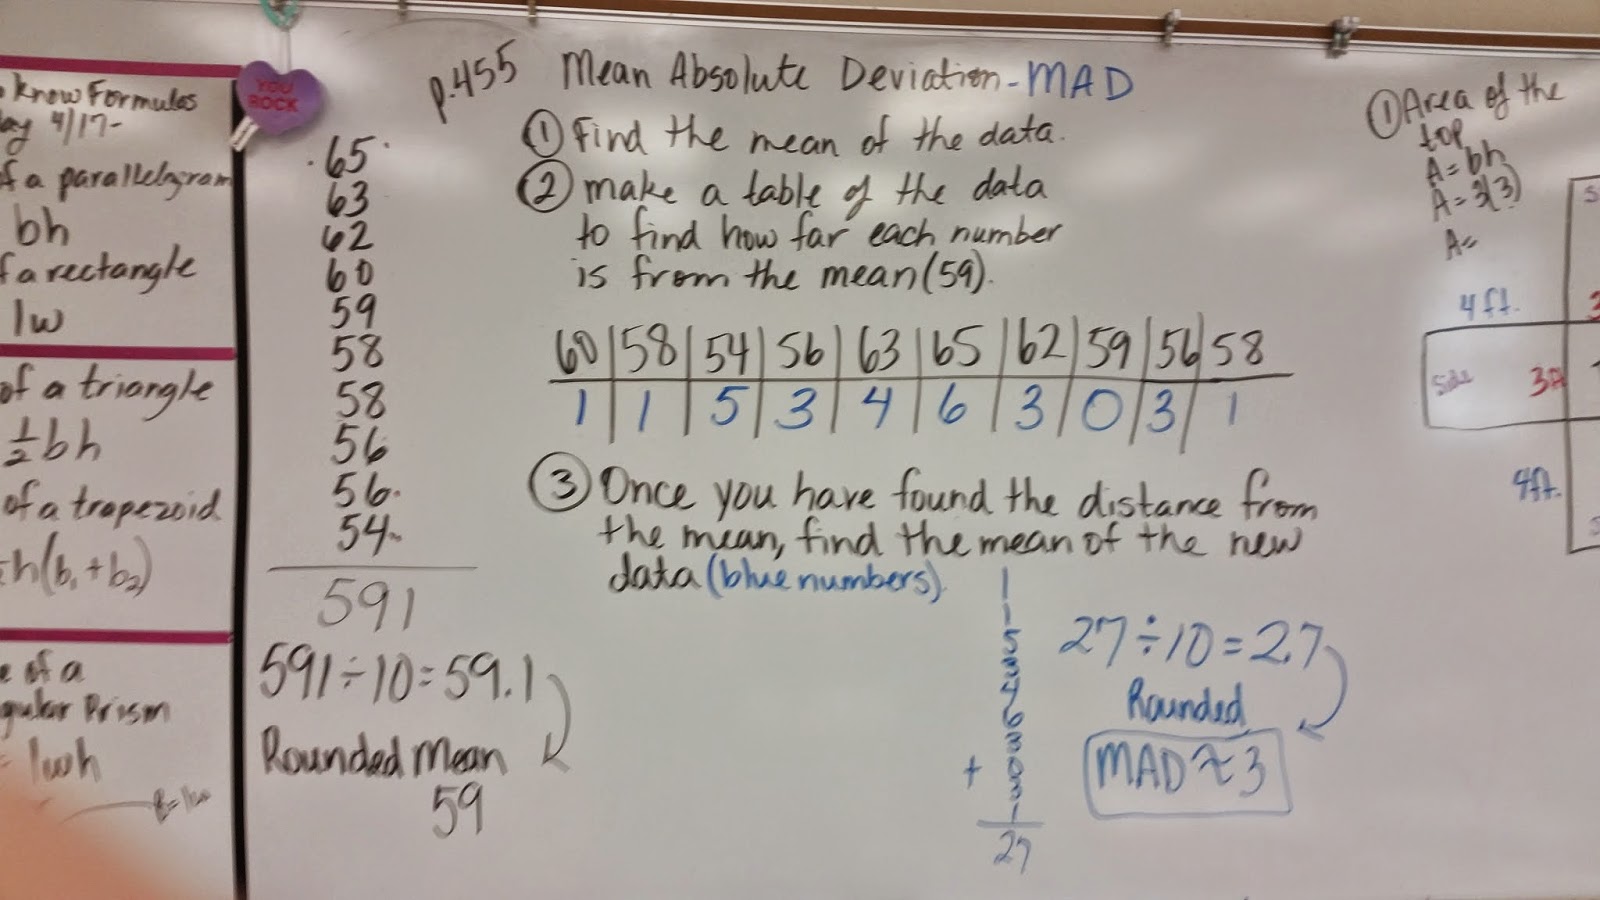 Know Formulas
4/17-
of a parallelogram
bh
of a rectangle
lw
of a triangle
1/2 bh
of a trapezoid
h(b₁+b₂)
of a
Prism
lwh
YOU
ROCK
65
63
62
60
59
58
58
56
56
54
591
591÷10=59.1
Rounded Mean
59
p.455 Mean Absolute Deviation-MAD
① Find the mean of the data.
② make a table of the data
to find how far each number
is from the mean (59).
60 58 54 56 63 65 62 59 56 58
1 1 5 3 4 6 3 0 3 1
③ Once you have found the distance from
the mean, find the mean of the new
data (blue numbers).
1
1
5
3
4
6
3
0
3
+ 1
27
27÷10=2.7
Rounded
MAD≈3
① Area of the
top
A=bh
A=3(3)
A=
4ft.
Side
4ft.